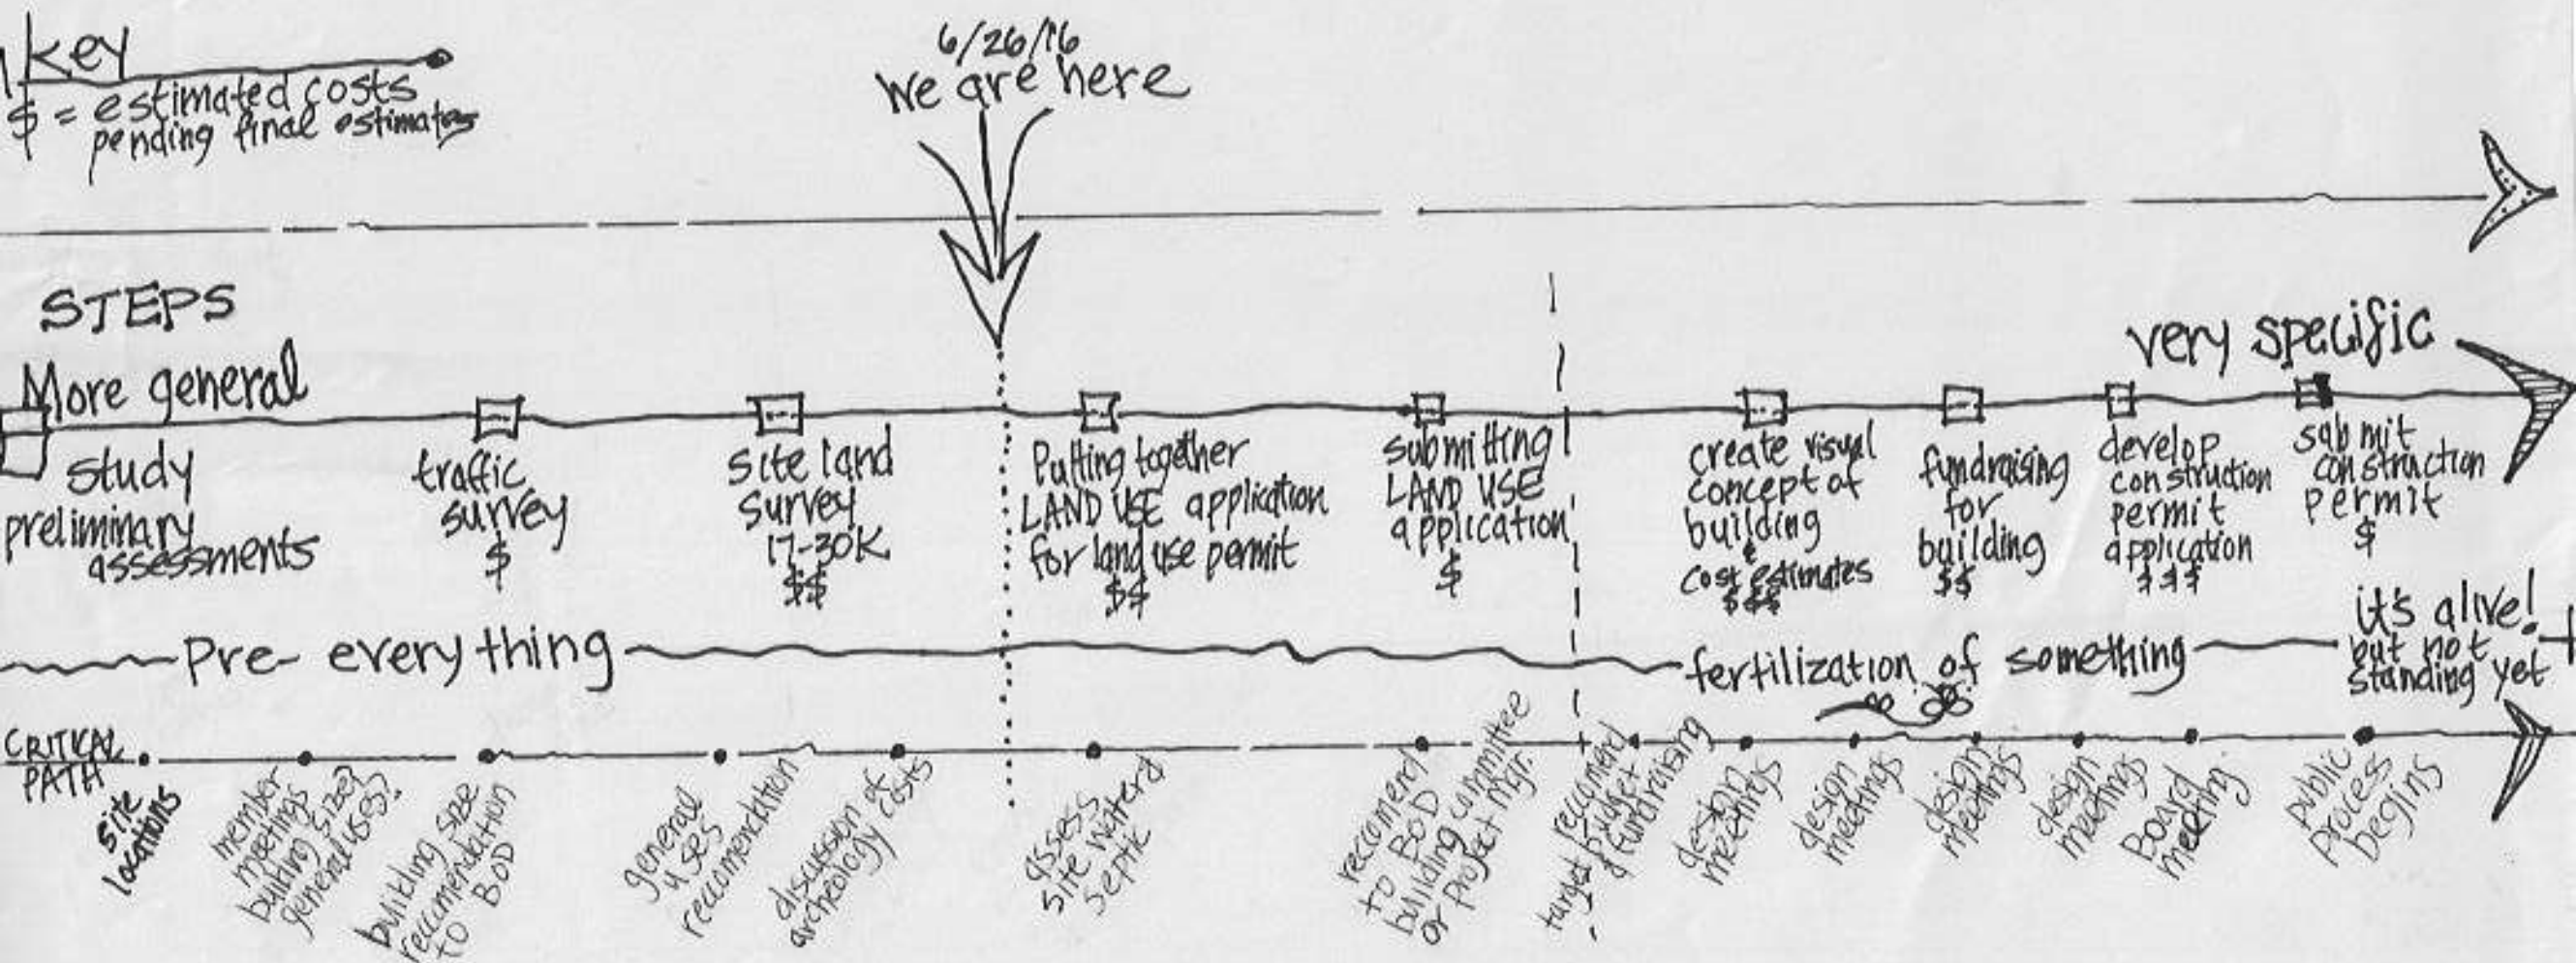 key
$ = estimated costs
pending final estimates
6/26/16
We are here
STEPS
More general
very specific
study
preliminary
assessments
traffic
survey
$
site land
survey
17-30K
$$
Putting together
LAND USE application
for land use permit
$$
submitting
LAND USE
application
$
create visual
concept of
building
&
cost estimates
$$$
fundraising
for
building
$$
develop
construction
permit
application
$$$
submit
construction
permit
$
Pre-everything
fertilization of something
it's alive!
but not
standing yet
CRITICAL
PATH
site
locations
member
meetings
building size?
general uses?
building size
reccomendation
TO BOD
general
uses
reccomendation
discussion of
archeology costs
assess
site water &
septic
recomend
TO BOD
building committee
or Project Mgr.
reccomend
target budget
& fundraising
design
meetings
design
meetings
design
meetings
design
meetings
Board
meeting
public
process
begins